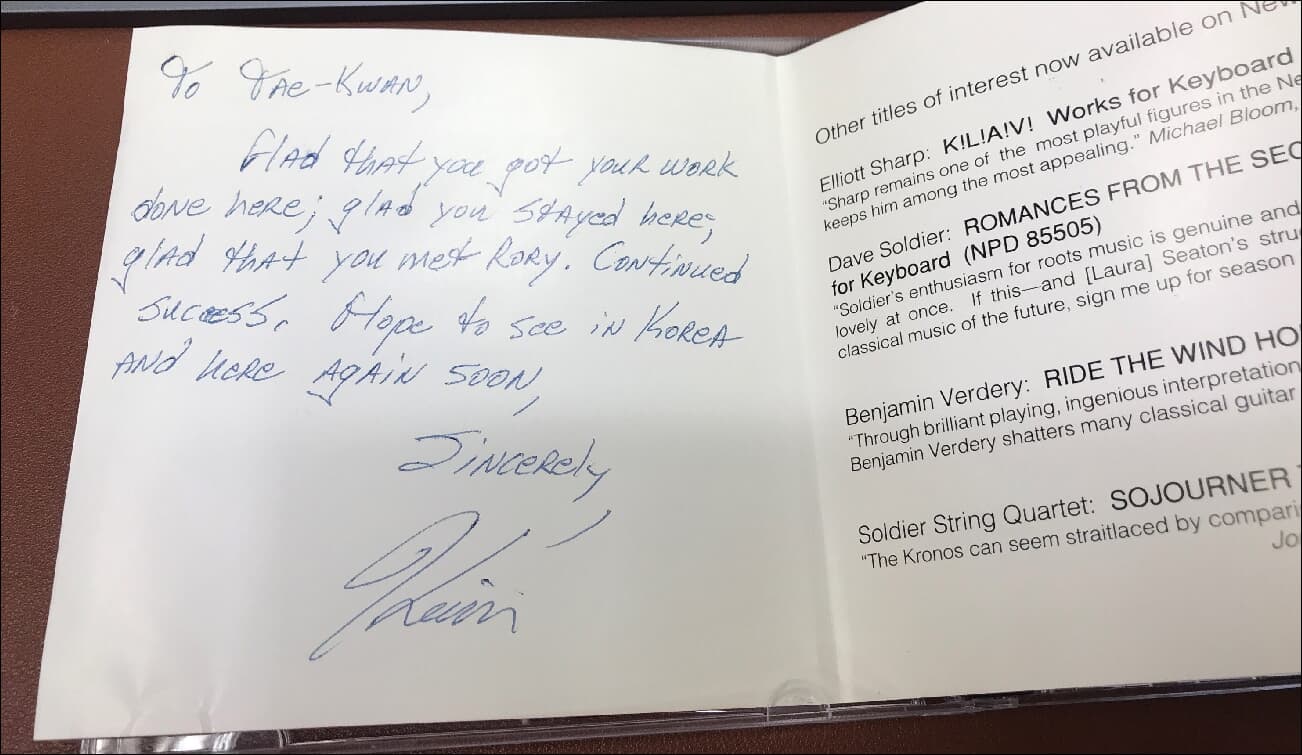 To Tae-Kwan,
Glad that you got your work
done here; glad you stayed here;
glad that you met Rory. Continued
success. Hope to see in Korea
and here again soon,
Sincerely,
Kevin
Other titles of interest now available on New
Elliott Sharp: K!L!A!V! Works for Keyboard
“Sharp remains one of the most playful figures in the Ne
keeps him among the most appealing.” Michael Bloom,
Dave Soldier: ROMANCES FROM THE SEC
for Keyboard (NPD 85505)
“Soldier's enthusiasm for roots music is genuine and
lovely at once. If this—and [Laura] Seaton's stru
classical music of the future, sign me up for season
Benjamin Verdery: RIDE THE WIND HO
“Through brilliant playing, ingenious interpretation
Benjamin Verdery shatters many classical guitar
Soldier String Quartet: SOJOURNER T
“The Kronos can seem straitlaced by compari
Jo